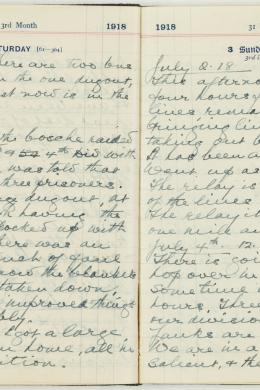 3rd Month 1918
TURDAY [61—304]
here are two one
n the one dugout,
st now is in the
the bosche raided
4th Div with
was told that
three prisoners.
dugout, at
h having the
locked up with
here was an
nch of game
now the blankets
taken down,
improved things
bly.
I got a large
m home, all in
ition.
1918 31
3 Sund
July 2. 18
This afterno
four hours o
lines rema
bringing lin
taking out t
It had been a
Went up as
The relay is
of the lines
The relay it
one mile an
July 4th 12.
There is goi
hop over in
Sometime
hours, Three
our division
Tanks are
We are in a
Salient, & the